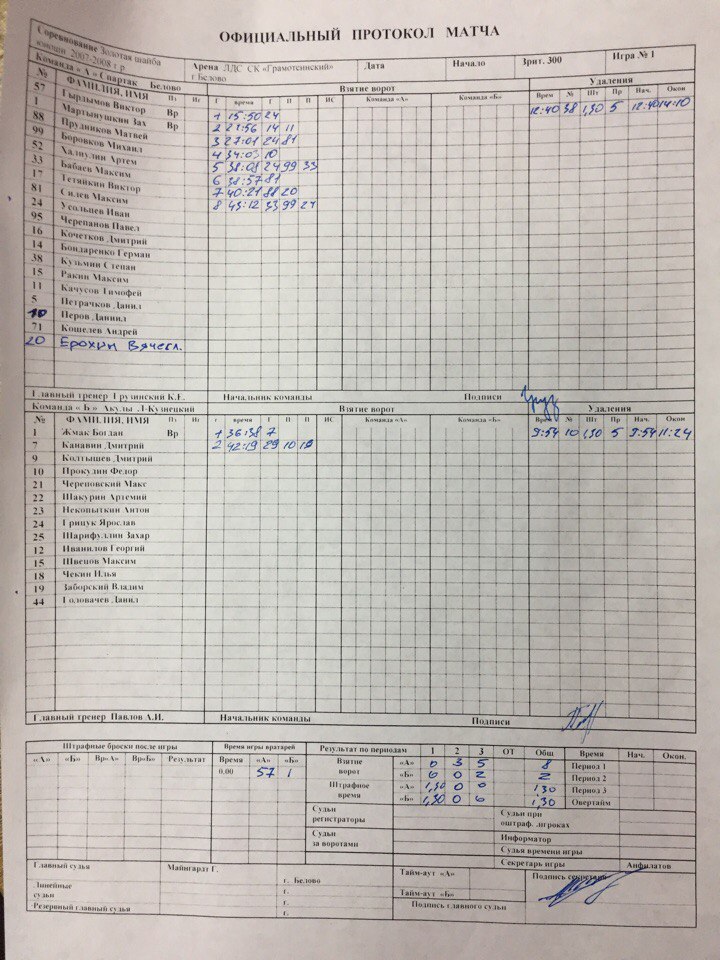 ОФИЦИАЛЬНЫЙ ПРОТОКОЛ МАТЧА
Соревнование Золотая шайба
юноши 2007-2008 г.р.
Арена ЛДС СК «Грамотеинский»
г.Белово
Дата
Начало
Зрит. 300
Игра № 1
Команда « А » Спартак Белово
Взятие ворот
Удаления
№ ФАМИЛИЯ, ИМЯ Пз Иг Г время Г П П ИС Команда «А» Команда «Б» Врем № Шт Пр Нач. Окон
57 Гырдымов Виктор Вр 1 15:50 24 12:40 38 1,30 5 12:40 14:10
1 Мартынушкин Зах Вр 2 22:56 14 11
88 Прудников Матвей 3 27:01 24 81
99 Боровков Михаил 4 34:03 10
52 Халиулин Артем 5 38:08 24 99 33
33 Бабаев Максим 6 38:57 81
17 Тетяйкин Виктор 7 40:21 88 20
81 Силев Максим 8 43:12 33 99 24
24 Усольцев Иван
95 Черепанов Павел
16 Кочетков Дмитрий
14 Бондаренко Герман
38 Кузьмин Степан
15 Ракин Максим
11 Качусов Тимофей
5 Петрачков Данил
10 Перов Даниил
71 Кошелев Андрей
20 Ерохин Вячесл.
Главный тренер Грузинский К.Е. Начальник команды Подписи
Команда « Б » Акулы Л-Кузнецкий Взятие ворот Удаления
№ ФАМИЛИЯ, ИМЯ Пз Иг г время Г П П ИС Команда «А» Команда «Б» Врем № Шт Пр Нач. Окон
1 Жмак Богдан Вр 1 36:38 7 9:54 10 1,30 5 9:54 11:24
7 Канавин Дмитрий 2 42:19 29 10 18
9 Колтышев Дмитрий
10 Прокудин Федор
21 Череповский Макс
22 Шакурин Артемий
23 Некопыткин Антон
24 Грицук Ярослав
25 Шарифуллин Захар
12 Иванилов Георгий
15 Швецов Максим
18 Чекин Илья
19 Заборский Владим
44 Головачев Данил
Главный тренер Павлов А.И. Начальник команды Подписи
Штрафные броски после игры Время игры вратарей Результат по периодам 1 2 3 ОТ Общ Время Нач. Окон.
«А» «Б» Вр«А» Вр«Б» Результат Время «А» «Б» Взятие ворот «А» 0 3 5 8 Период 1
0.00 57 1 «Б» 0 0 2 2 Период 2
Штрафное время «А» 1,30 0 0 1,30 Период 3
«Б» 1,30 0 0 1,30 Овертайм
Судьи регистраторы
Судьи при оштраф. игроках
Судьи за воротами
Информатор
Судья времени игры
Секретарь игры Анфилатов
Главный судья Майнгардт Г. г. Белово Тайм-аут «А» Подпись секретаря
Линейные судьи г. Тайм-аут «Б»
г.
Резервный главный судья г. Подпись главного судьи